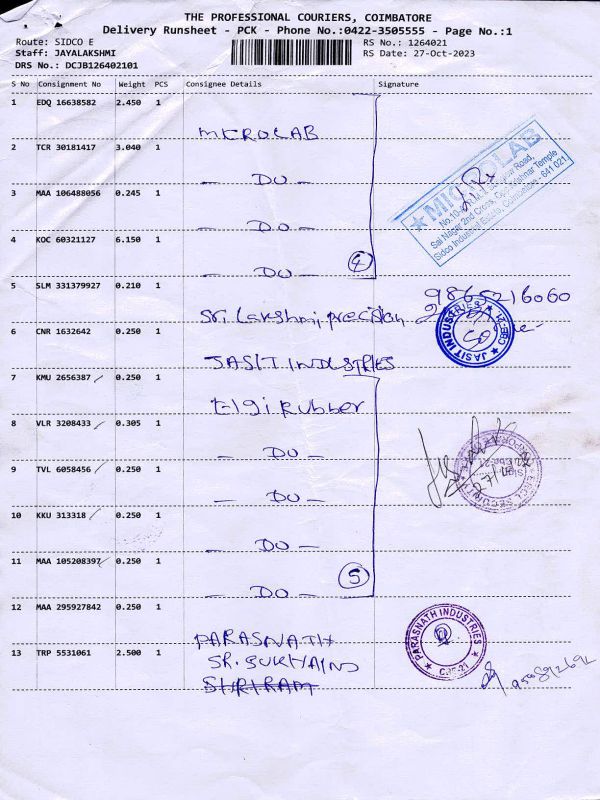 THE PROFESSIONAL COURIERS, COIMBATORE
Delivery Runsheet - PCK - Phone No.:0422-3505555 - Page No.:1
Route: SIDCO E RS No.: 1264021
Staff: JAYALAKSHMI RS Date: 27-Oct-2023
DRS No.: DCJB126402101
S No Consignment No Weight PCS Consignee Details Signature
1 EDQ 16638582 2.450 1
MICROLAB
2 TCR 30181417 3.040 1
— DO —
3 MAA 106488056 0.245 1
— DO —
4 KOC 60321127 6.150 1
— DO — 4
MICRO LAB
Sai Nagar 2nd Cross,
Sidco Industrial Estate, Coimbatore - 641 021
5 SLM 331379927 0.210 1
Sri Lakshmi precision 9865216060
6 CNR 1632642 0.250 1
JASIT INDUSTRIES
JASIT INDUSTRIES CBE-21
7 KMU 2656387 0.250 1
Elgi Rubber
8 VLR 3208433 0.305 1
— DO —
9 TVL 6058456 0.250 1
— DO —
10 KKU 313318 0.250 1
— DO —
11 MAA 105208397 0.250 1
— DO — 5
12 MAA 295927842 0.250 1
PARASNATH
PARASNATH INDUSTRIES CBE-21
13 TRP 5531061 2.500 1
SR. SUKHAINS
SURIRAM